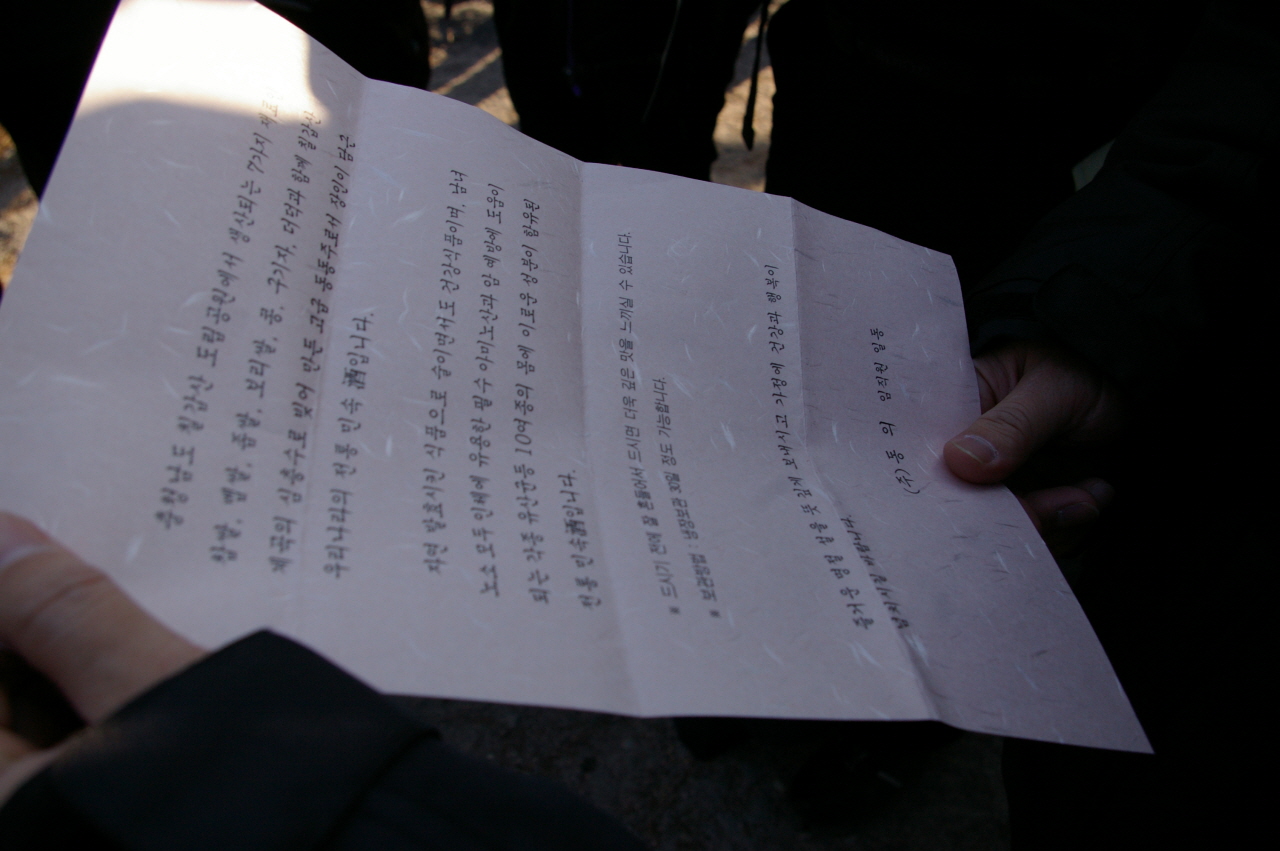 충청남도 칠갑산 도립공원에서 생산되는 7가지 재료인
찹쌀, 멥쌀, 좁쌀, 보리쌀, 콩, 구기자, 더덕과 함께 칠갑산
계곡의 심층수로 빚어 만든 고급 동동주로서 장인이 담근
우리나라의 전통 민속 酒입니다.
자연 발효시킨 식품으로 술이면서도 건강식품이며, 남녀
노소 모두 인체에 유용한 필수 아미노산과 암 예방에 도움이
되는 각종 유산균등 10여종의 몸에 이로운 성분이 함유된
전통 민속酒입니다.
※ 드시기 전에 잘 흔들어서 드시면 더욱 깊은 맛을 느끼실 수 있습니다.
※ 보관방법 : 냉장보관 30일 정도 가능합니다.
즐거운 명절 설을 뜻 깊게 보내시고 가정에 건강과 행복이
넘치시길 바랍니다.
(주)동의 임직원 일동